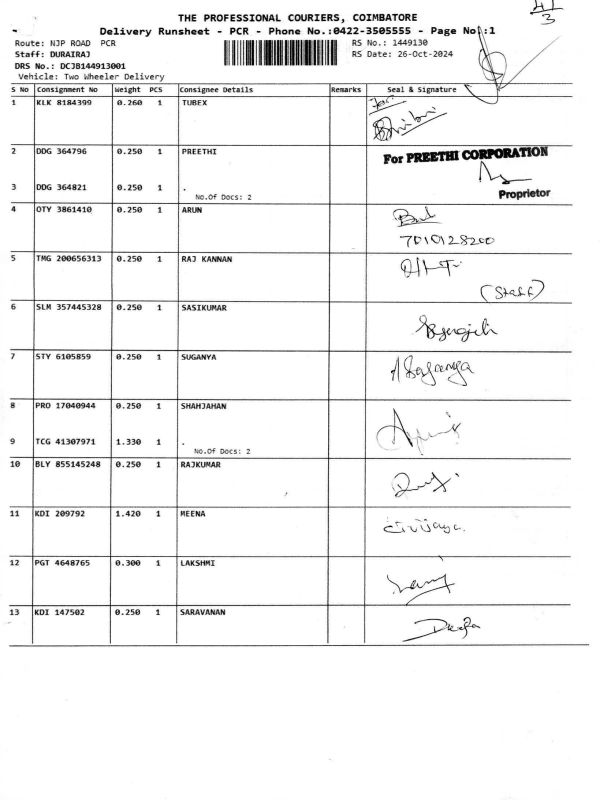 41
3
THE PROFESSIONAL COURIERS, COIMBATORE
Delivery Runsheet - PCR - Phone No.:0422-3505555 - Page No.:1
Route: NJP ROAD PCR
RS No.: 1449130
Staff: DURAIRAJ
RS Date: 26-Oct-2024
DRS No.: DCJB144913001
Vehicle: Two Wheeler Delivery
S No Consignment No Weight PCS Consignee Details Remarks Seal & Signature
1 KLK 8184399 0.260 1 TUBEX
2 DDG 364796 0.250 1 PREETHI For PREETHI CORPORATION
3 DDG 364821 0.250 1 .
No.Of Docs: 2 Proprietor
4 OTY 3861410 0.250 1 ARUN
7010128200
5 TMG 200656313 0.250 1 RAJ KANNAN
(Staff)
6 SLM 357445328 0.250 1 SASIKUMAR
7 STY 6105859 0.250 1 SUGANYA
8 PRO 17040944 0.250 1 SHAHJAHAN
9 TCG 41307971 1.330 1 .
No.Of Docs: 2
10 BLY 855145248 0.250 1 RAJKUMAR
11 KDI 209792 1.420 1 MEENA
12 PGT 4648765 0.300 1 LAKSHMI
13 KDI 147502 0.250 1 SARAVANAN